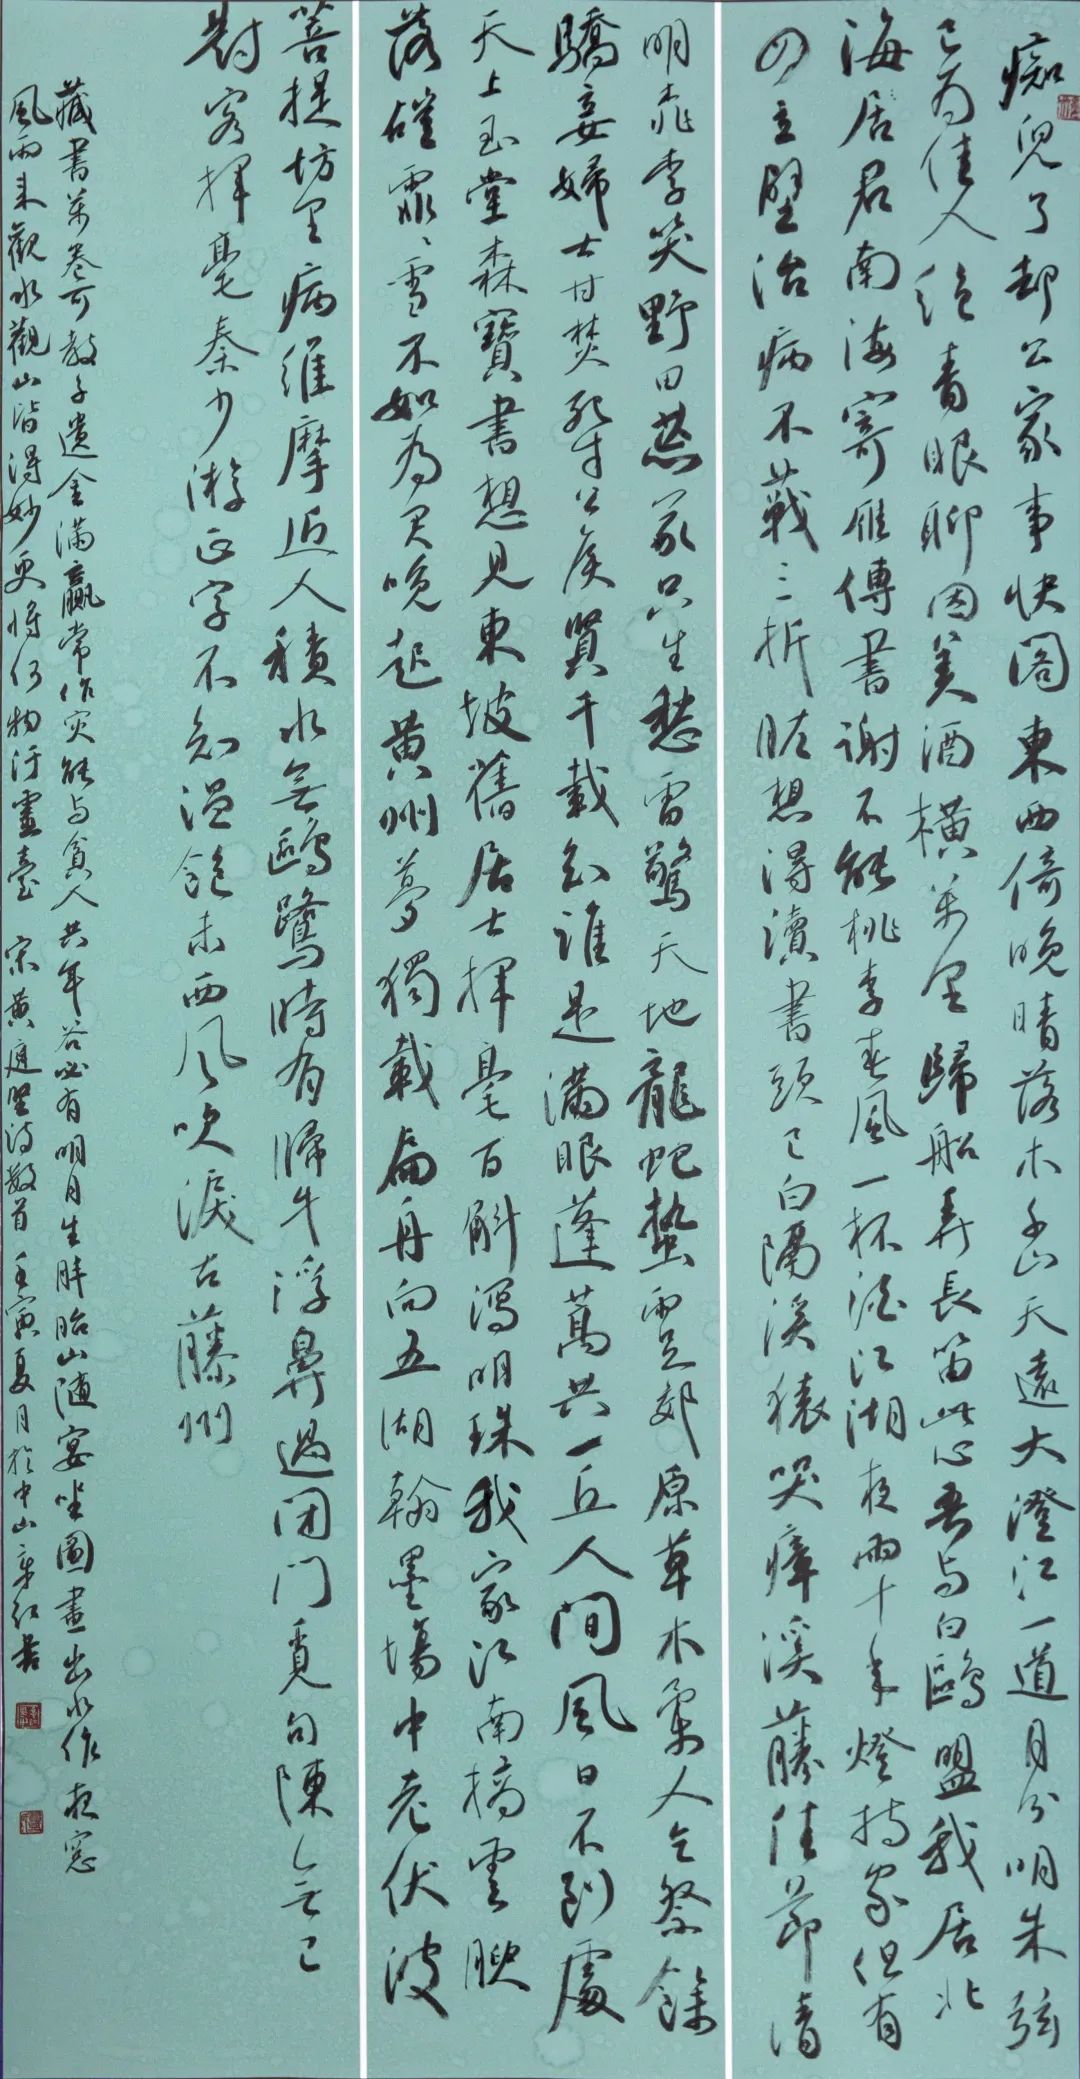 痴兒了却公家事快閣東西倚晚晴落木千山天遠大澄江一道月分明朱弦
已為佳人絕青眼聊因美酒橫萬里歸船弄長笛此心吾与白鷗盟我居北
海居君南海寄雁傳書謝不能桃李春風一杯酒江湖夜雨十年燈持家但有
四立壁治病不蘄三折肱想得讀書頭已白隔溪猿哭瘴溪藤佳節清
明桃李笑野田荒冢只生愁雷驚天地龍蛇蟄雨足郊原草木柔人乞祭餘
驕妾婦士甘焚死不公侯賢千載知誰是滿眼蓬蒿共一丘人間風日不到處
天上玉堂森寶書想見東坡舊居士揮毫百斛瀉明珠我家江南摘雲腴
落磑霏霏雪不如為君喚起黃州夢獨載扁舟向五湖翰墨場中老伏波
菩提坊里病維摩近人積水無鷗鷺時有歸牛浮鼻過閉門覓句陳無己
對客揮毫秦少游正字不知溫飽未西風吹淚古藤州
藏書萬卷可教子遺金滿贏常作災能与貧人共年谷必有明月生蚌胎山隨宴坐圖畫出水作夜窓
風雨来觀水觀山皆得妙更將何物汙靈臺 宋黃庭堅詩數首壬寅夏月於中山章紅書